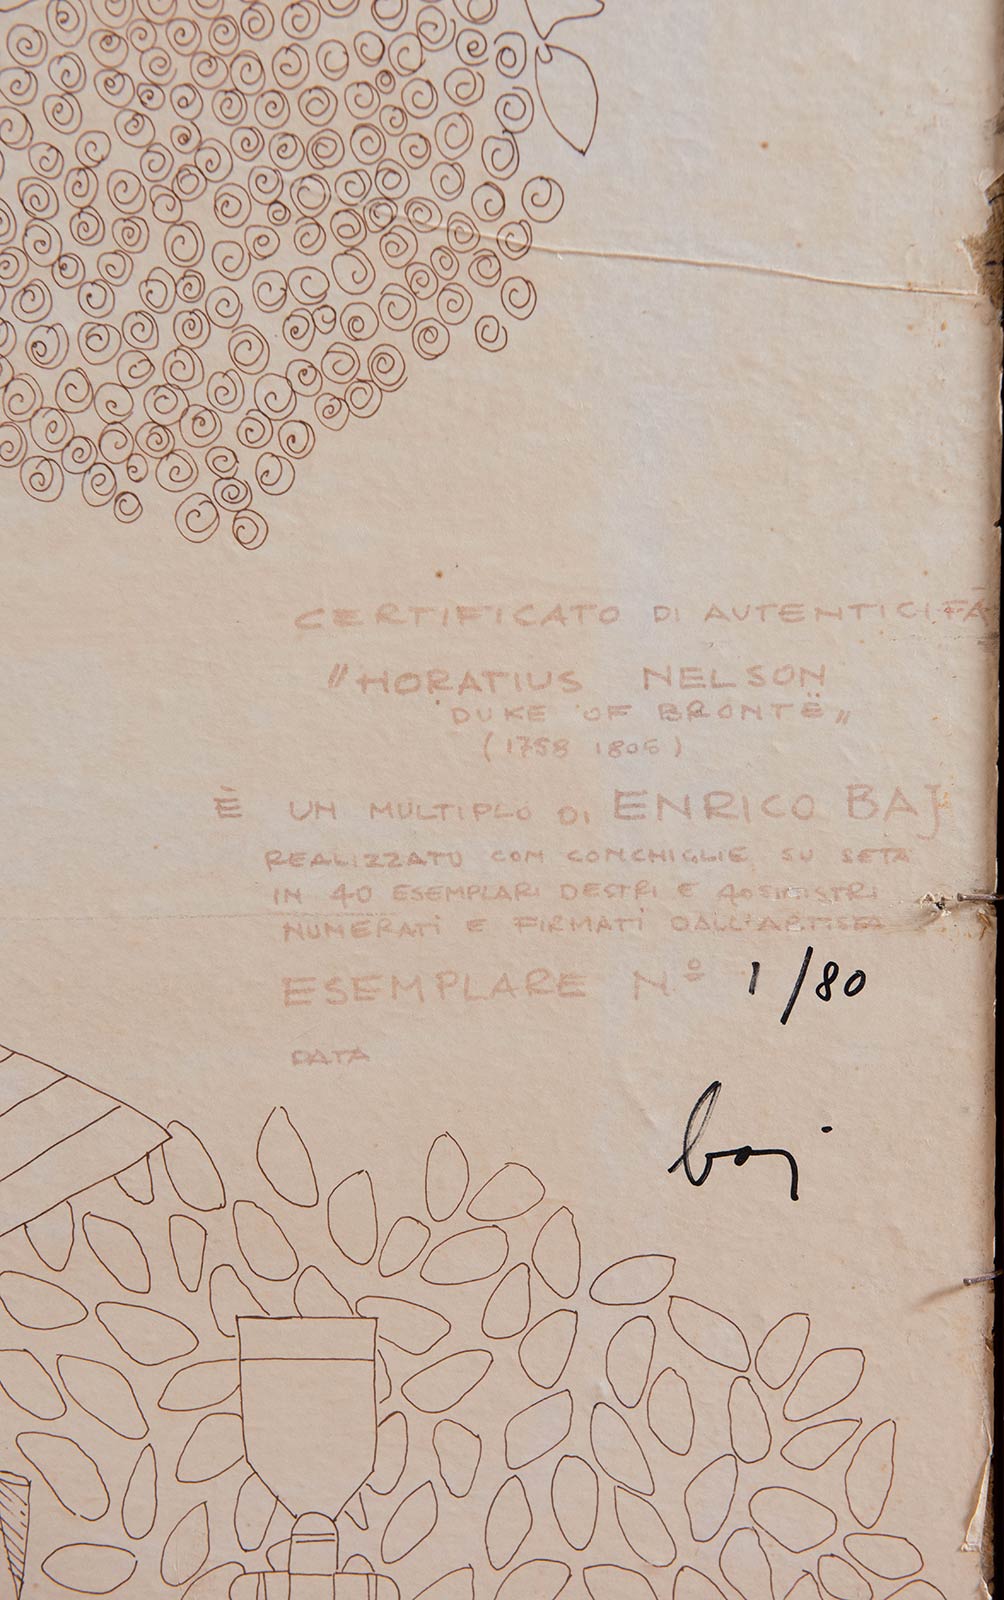 CERTIFICATO DI AUTENTICITÀ
"HORATIUS NELSON
DUKE OF BRONTË"
(1758 1805)
È UN MULTIPLO DI ENRICO BAJ
REALIZZATO CON CONCHIGLIE SU SETA
IN 40 ESEMPLARI DESTRI E 40 SINISTRI
NUMERATI E FIRMATI DALL'ARTISTA
ESEMPLARE Nº 1/80
DATA
baj